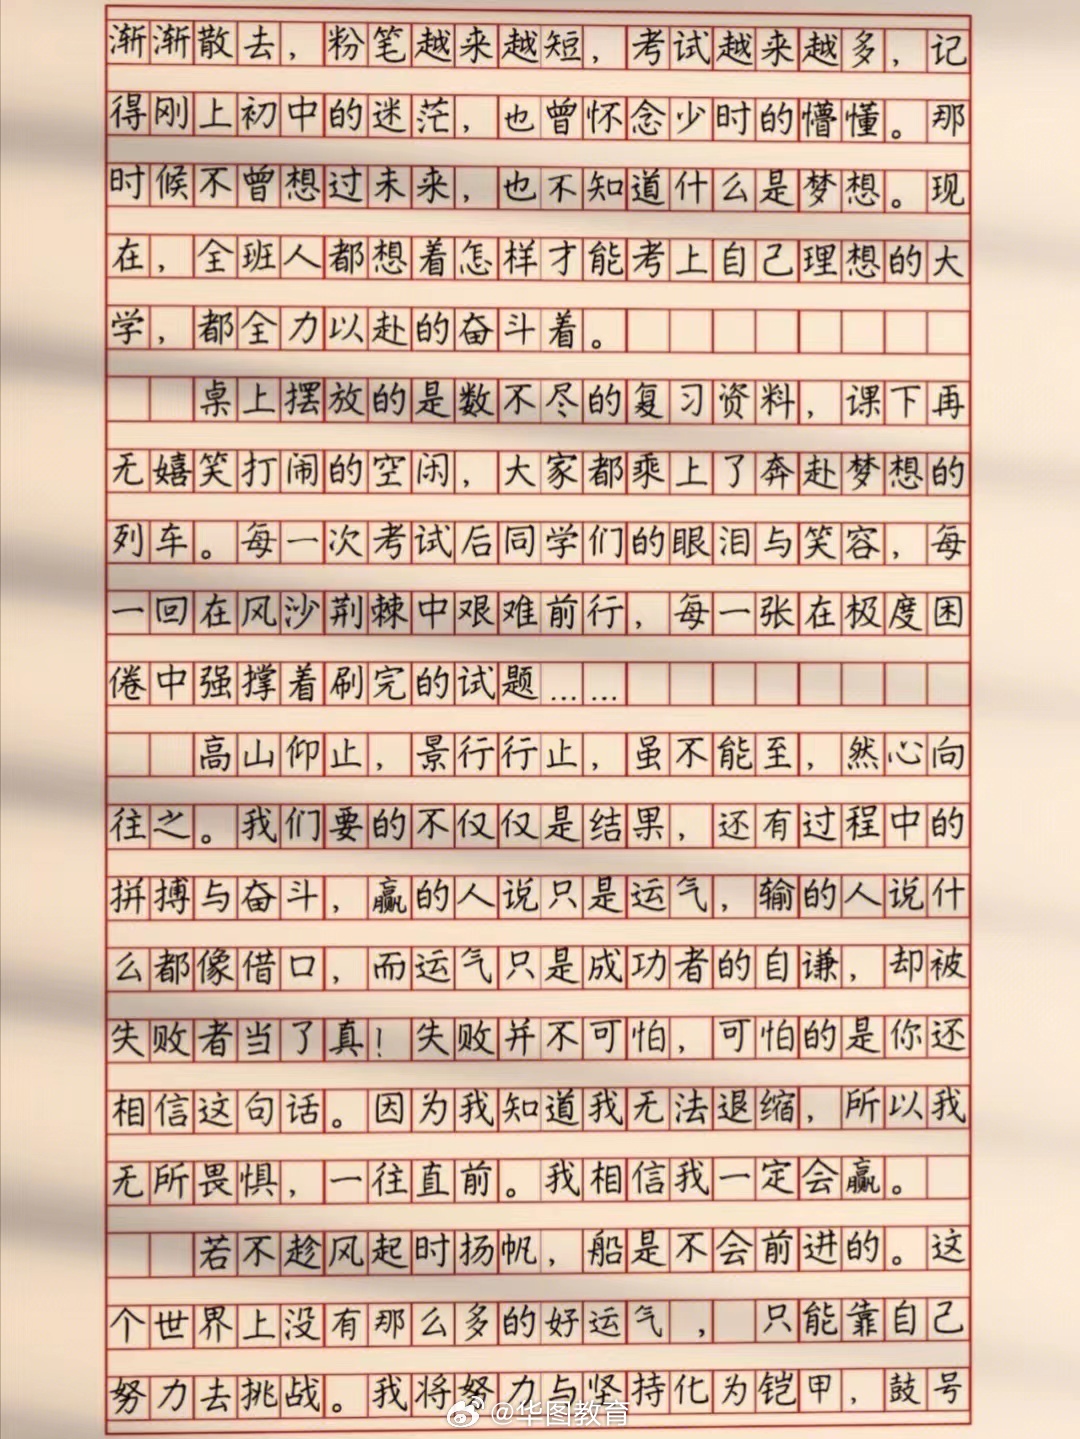 渐渐散去，粉笔越来越短，考试越来越多，记
得刚上初中的迷茫，也曾怀念少时的懵懂。那
时候不曾想过未来，也不知道什么是梦想。现
在，全班人都想着怎样才能考上自己理想的大
学，都全力以赴的奋斗着。
桌上摆放的是数不尽的复习资料，课下再
无嬉笑打闹的空闲，大家都乘上了奔赴梦想的
列车。每一次考试后同学们的眼泪与笑容，每
一回在风沙荆棘中艰难前行，每一张在极度困
倦中强撑着刷完的试题……
高山仰止，景行行止，虽不能至，然心向
往之。我们要的不仅仅是结果，还有过程中的
拼搏与奋斗，赢的人说只是运气，输的人说什
么都像借口，而运气只是成功者的自谦，却被
失败者当了真！失败并不可怕，可怕的是你还
相信这句话。因为我知道我无法退缩，所以我
无所畏惧，一往直前。我相信我一定会赢。
若不趁风起时扬帆，船是不会前进的。这
个世界上没有那么多的好运气，只能靠自己
努力去挑战。我将努力与坚持化为铠甲，鼓号
@华图教育